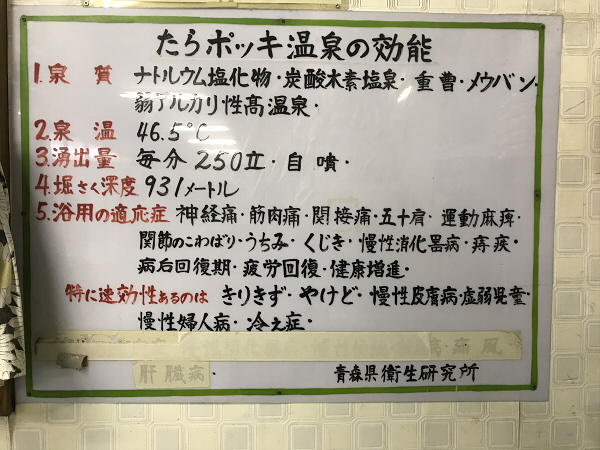 たらポッキ温泉の効能
1.泉質 ナトルウム塩化物・炭酸木素塩泉・重曹・メウバン・
弱アルカリ性高温泉・
2.泉温 46.5°C
3.湧出量 毎分250立・自噴・
4.堀さく深度931メートル
5.浴用の適応症 神経痛・筋肉痛・関接痛・五十肩・運動麻痺・
関節のこわばり・うちみ・くじき・慢性消化器病・痔疾・
病后回復期・疲労回復・健康増進・
特に速効性あるのは きりきず・やけど・慢性皮膚病・虚弱児童
慢性婦人病・冷え症・
病・痛風
肝臓病
青森県衛生研究所